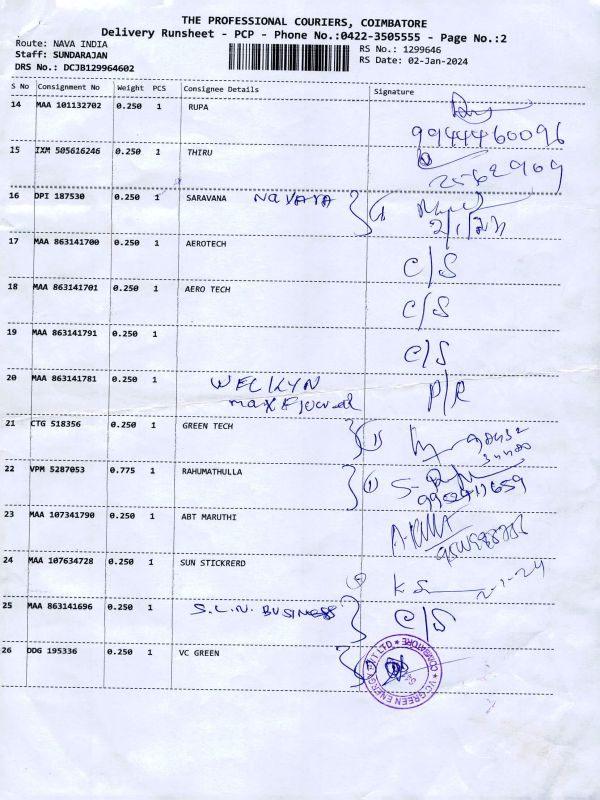 THE PROFESSIONAL COURIERS, COIMBATORE
Delivery Runsheet - PCP - Phone No.:0422-3505555 - Page No.:2
Route: NAVA INDIA
RS No.: 1299646
Staff: SUNDARAJAN
RS Date: 02-Jan-2024
DRS No.: DCJB129964602
S No Consignment No Weight PCS Consignee Details Signature
14 MAA 101132702 0.250 1 RUPA
9944460096
15 IXM 505616246 0.250 1 THIRU
16 DPI 187530 0.250 1 SARAVANA NAVAYA
17 MAA 863141700 0.250 1 AEROTECH
C/S
18 MAA 863141701 0.250 1 AERO TECH
C/S
19 MAA 863141791 0.250 1
C/S
20 MAA 863141781 0.250 1 WELKYN P/R
21 CTG 518356 0.250 1 GREEN TECH
22 VPM 5287053 0.775 1 RAHUMATHULLA
23 MAA 107341790 0.250 1 ABT MARUTHI
24 MAA 107634728 0.250 1 SUN STICKRERD
2-1-24
25 MAA 863141696 0.250 1 S.L.N. BUSINESS C/S
26 DDG 195336 0.250 1 VC GREEN
VC GREEN ENERGY COIMBATORE